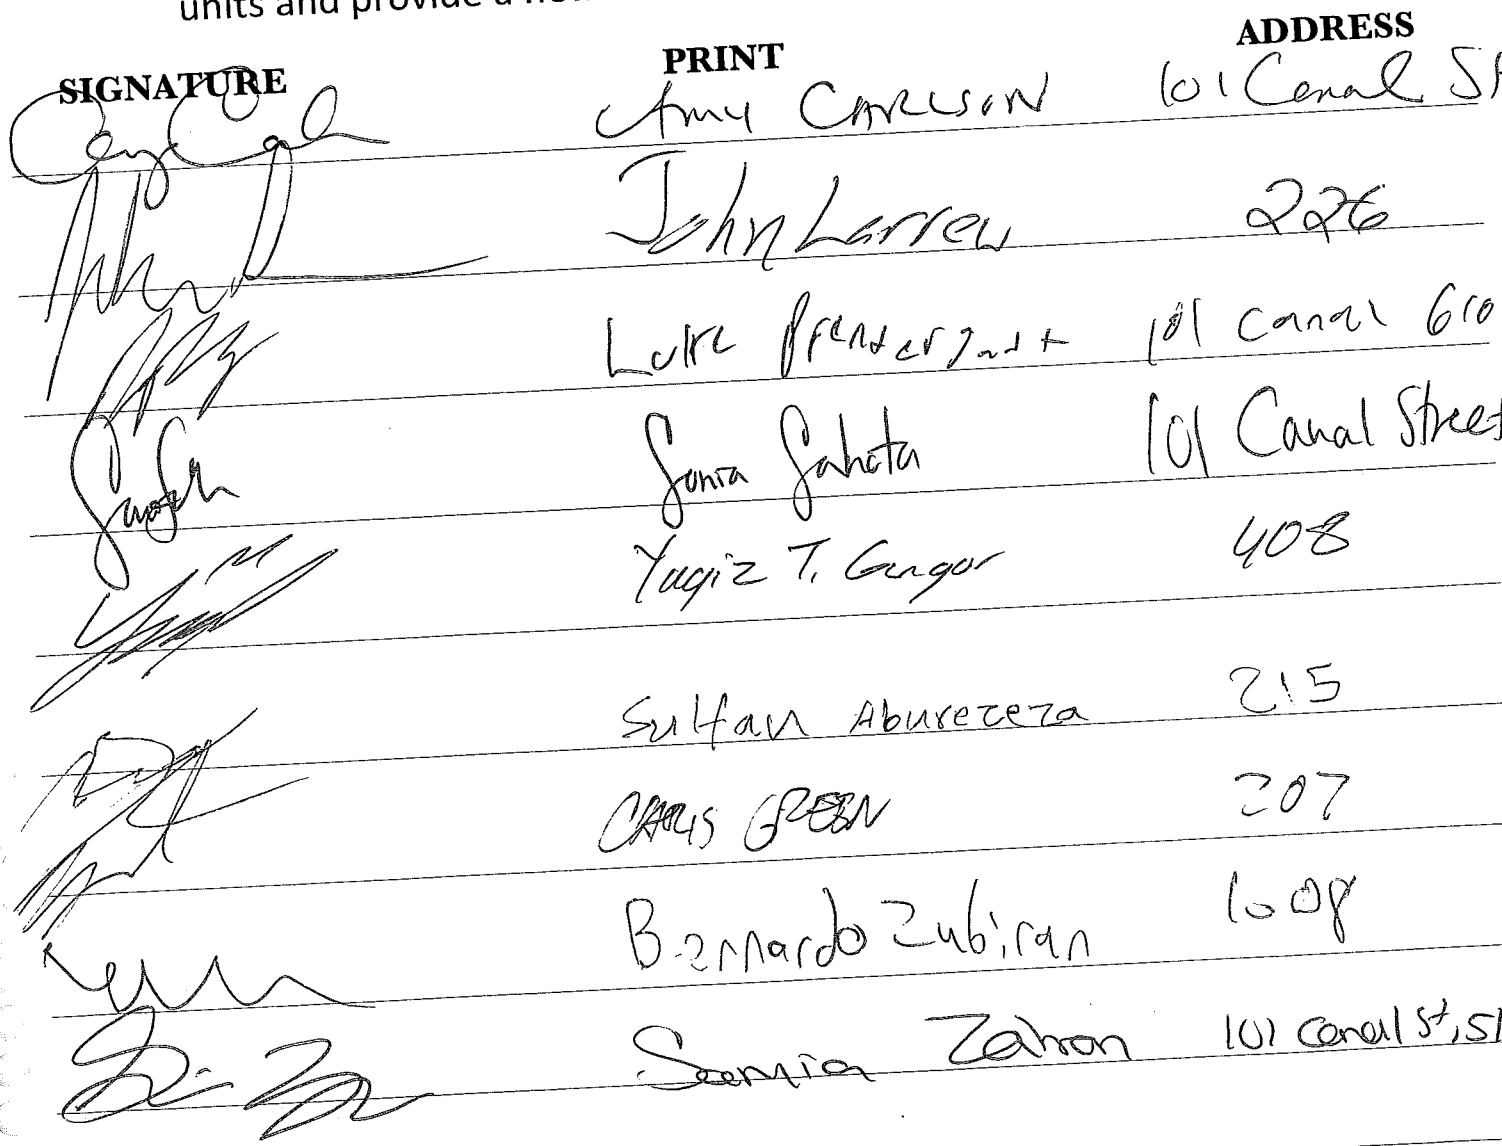 units and provide a
SIGNATURE PRINT ADDRESS
Amy CARLSON 101 Canal St
John Larrew 226
Luke Prendergast 101 canal 610
Sonia Sahota 101 Canal Street
Yagiz T. Gungor 408
Sultan Aburezeza 215
CHRIS GREEN 207
Bernardo Zubiran 1008
Samia Zahran 101 Canal St, 51